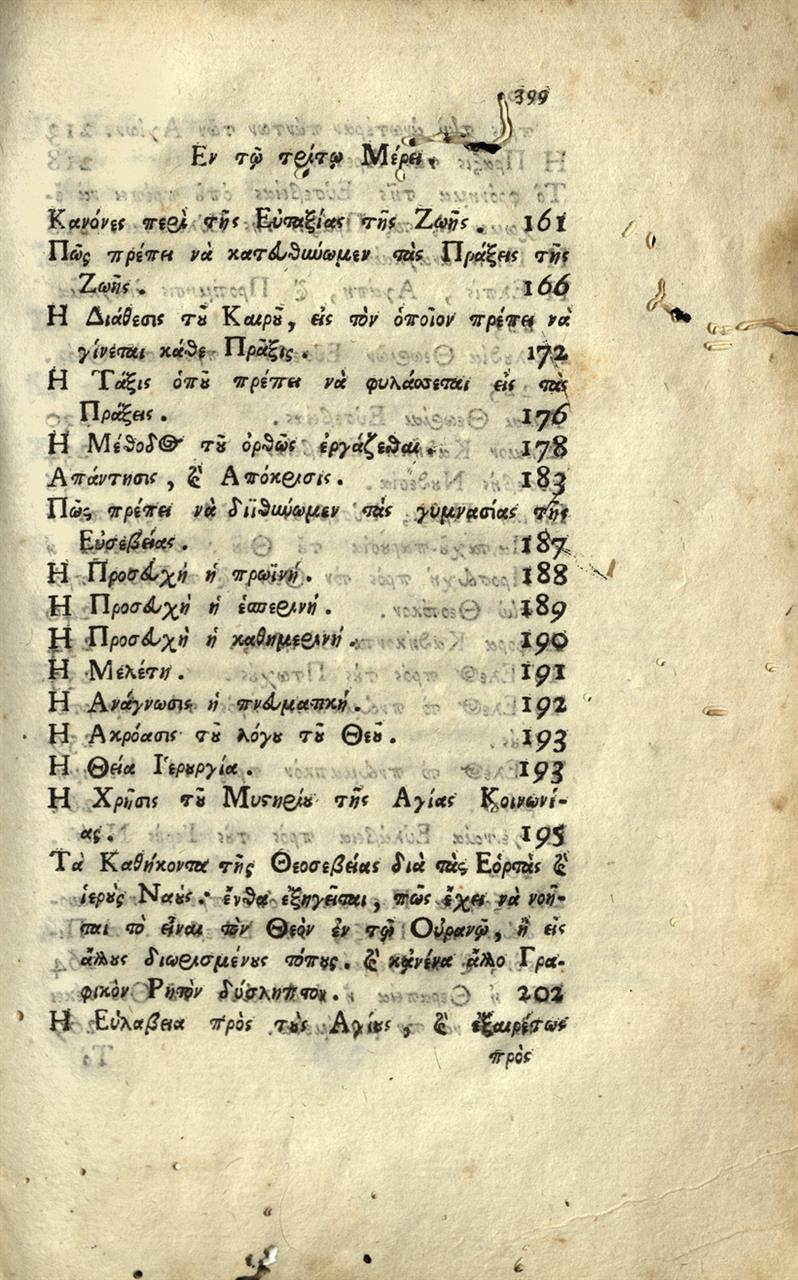 399
Εν τῷ τρίτῳ Μέρει.
Κανόνες περὶ τῆς Εὐταξίας τῆς Ζωῆς. 161
Πῶς πρέπει νὰ κατευθύνωμεν τὰς Πράξεις τῆς
Ζωῆς. 166
Η Διάθεσις τοῦ Καιροῦ, εἰς τὸν ὁποῖον πρέπει νὰ
γίνεται κάθε Πρᾶξις. 172
Η Τάξις ὁποῦ πρέπει νὰ φυλάσσεται εἰς τὰς
Πράξεις. 176
Η Μέθοδος τοῦ ὀρθῶς ἐργάζεσθαι. 178
Απάντησις, καὶ Απόκρισις. 183
Πῶς πρέπει νὰ διϊθύνωμεν τὰς γυμνασίας τῆς
Εὐσεβείας. 187
Η Προσευχὴ ἡ πρωϊνή. 188
Η Προσευχὴ ἡ ἑσπερινή. 189
Η Προσευχὴ ἡ καθημερινή. 190
Η Μελέτη. 191
Η Ανάγνωσις ἡ πνευματική. 192
Η Ακρόασις τοῦ λόγου τοῦ Θεοῦ. 193
Η Θεία Ιερουργία. 193
Η Χρῆσις τοῦ Μυστηρίου τῆς Αγίας Κοινωνί-
ας. 195
Τὰ Καθήκοντα τῆς Θεοσεβείας διὰ τὰς Εὁρτὰς καὶ
ἱεροὺς Ναούς. ἔνθα ἐξηγεῖται, πῶς ἔχει νὰ νοῆ-
ται τὸ εἶναι τὸν Θεὸν ἐν τῷ Οὐρανῷ, ἢ εἰς
ἄλλους διωρισμένους τόπους. καὶ κᾀνένα ἄλλο Γρα-
φικὸν Ρητὸν δύσληπτον. 202
Η Εὐλάβεια πρὸς τοὺς Αγίους, καὶ ἐξαιρέτως
πρὸς